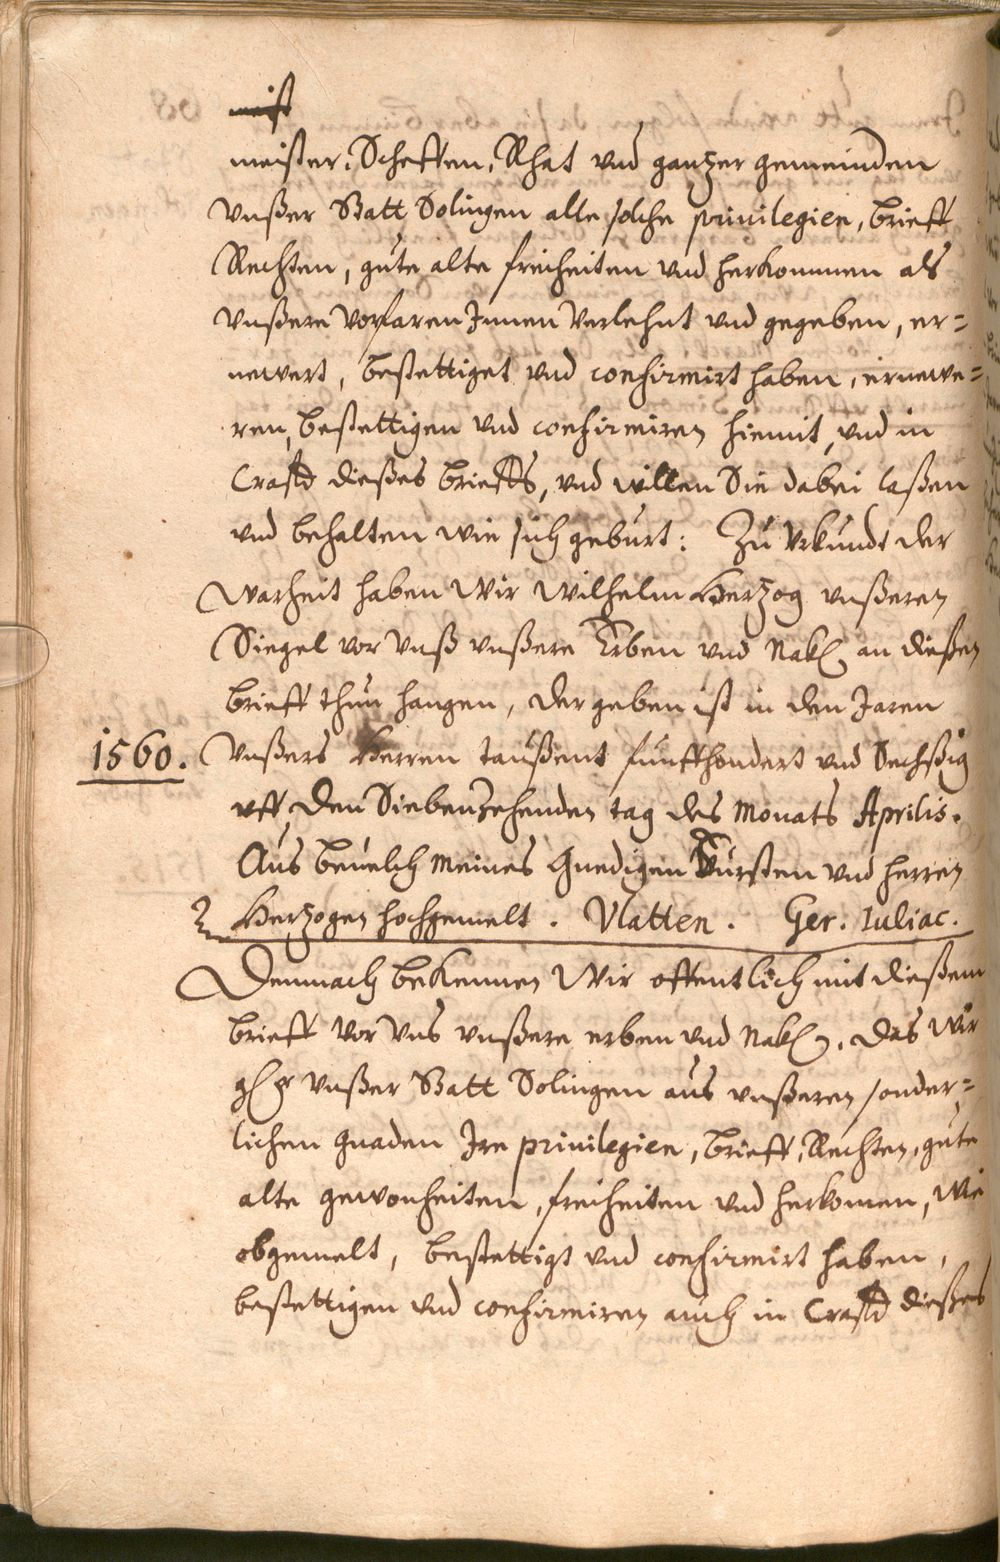 meist
meister, Scheffen, Rhat vnd gantzer gemeinden
Vnßer Statt Solingen alle solche priuilegien, brieff
Rechten, gute alte freiheiten vnd herkommen als
Vnßere Vorfaren Jnnen Verlehnt vnd gegeben, er=
newert, bestettiget vnd confirmirt haben, ernewe=
ren, bestettigen vnd confirmiren hiemit, vnd in
Crafft dießes brieffs, vnd willen Sie dabei laßen
vnd behalten wie sich geburt: Zu Vrkundt der
Warheit haben Wir Wilhelm Hertzog vnßeren
Siegel vor Vnß vnßere Erben vnd Nak. an dießen
brieff thun hangen, der geben ist in den Jaren
1560. Vnßers Herren taußent funffhondert vnd Sechßig
vff den Siebenzehenden tag des Monats Aprilis.
Aus beuelch meines Gnedigen Fursten vnd herren
Hertzogen hochgemelt. Vlatten. Ger. Iuliac.
Demnach bekennen Wir offentlich mit dießem
brieff vor vns vnßere erben vnd Nak. das Wir
vnßer Statt Solingen aus vnßeren sonder=
lichen gnaden Ire priuilegien, brieff, Rechten, gute
alte gewonheiten, freiheiten vnd herkomen, wie
obgemelt, bestettigt vnd confirmirt haben,
bestettigen vnd confirmiren auch in Crafft dießes